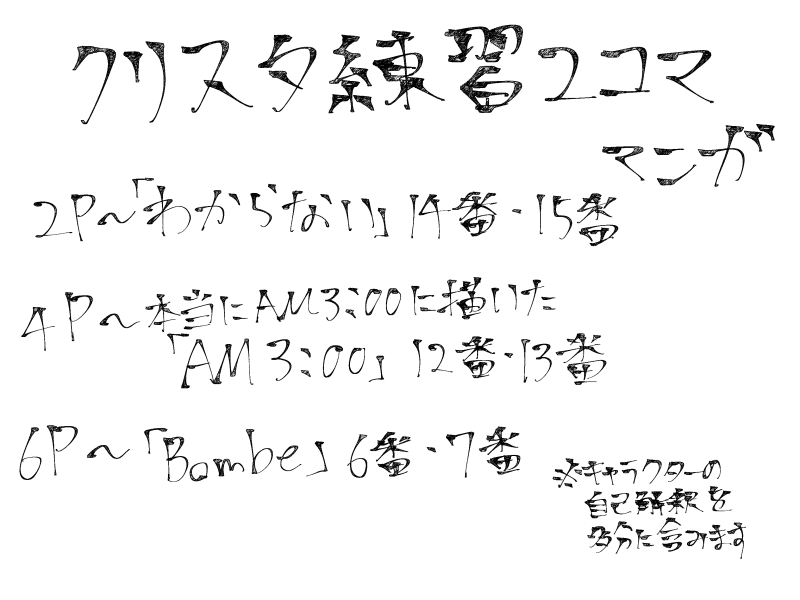 クリスタ練習2コマ
マンガ
2P～「わからない」14番・15番
4P～本当にAM3:00に描いた
「AM3:00」12番・13番
6P～「Bombe」6番・7番
※キャラクターの
自己解釈を
多分に含みます